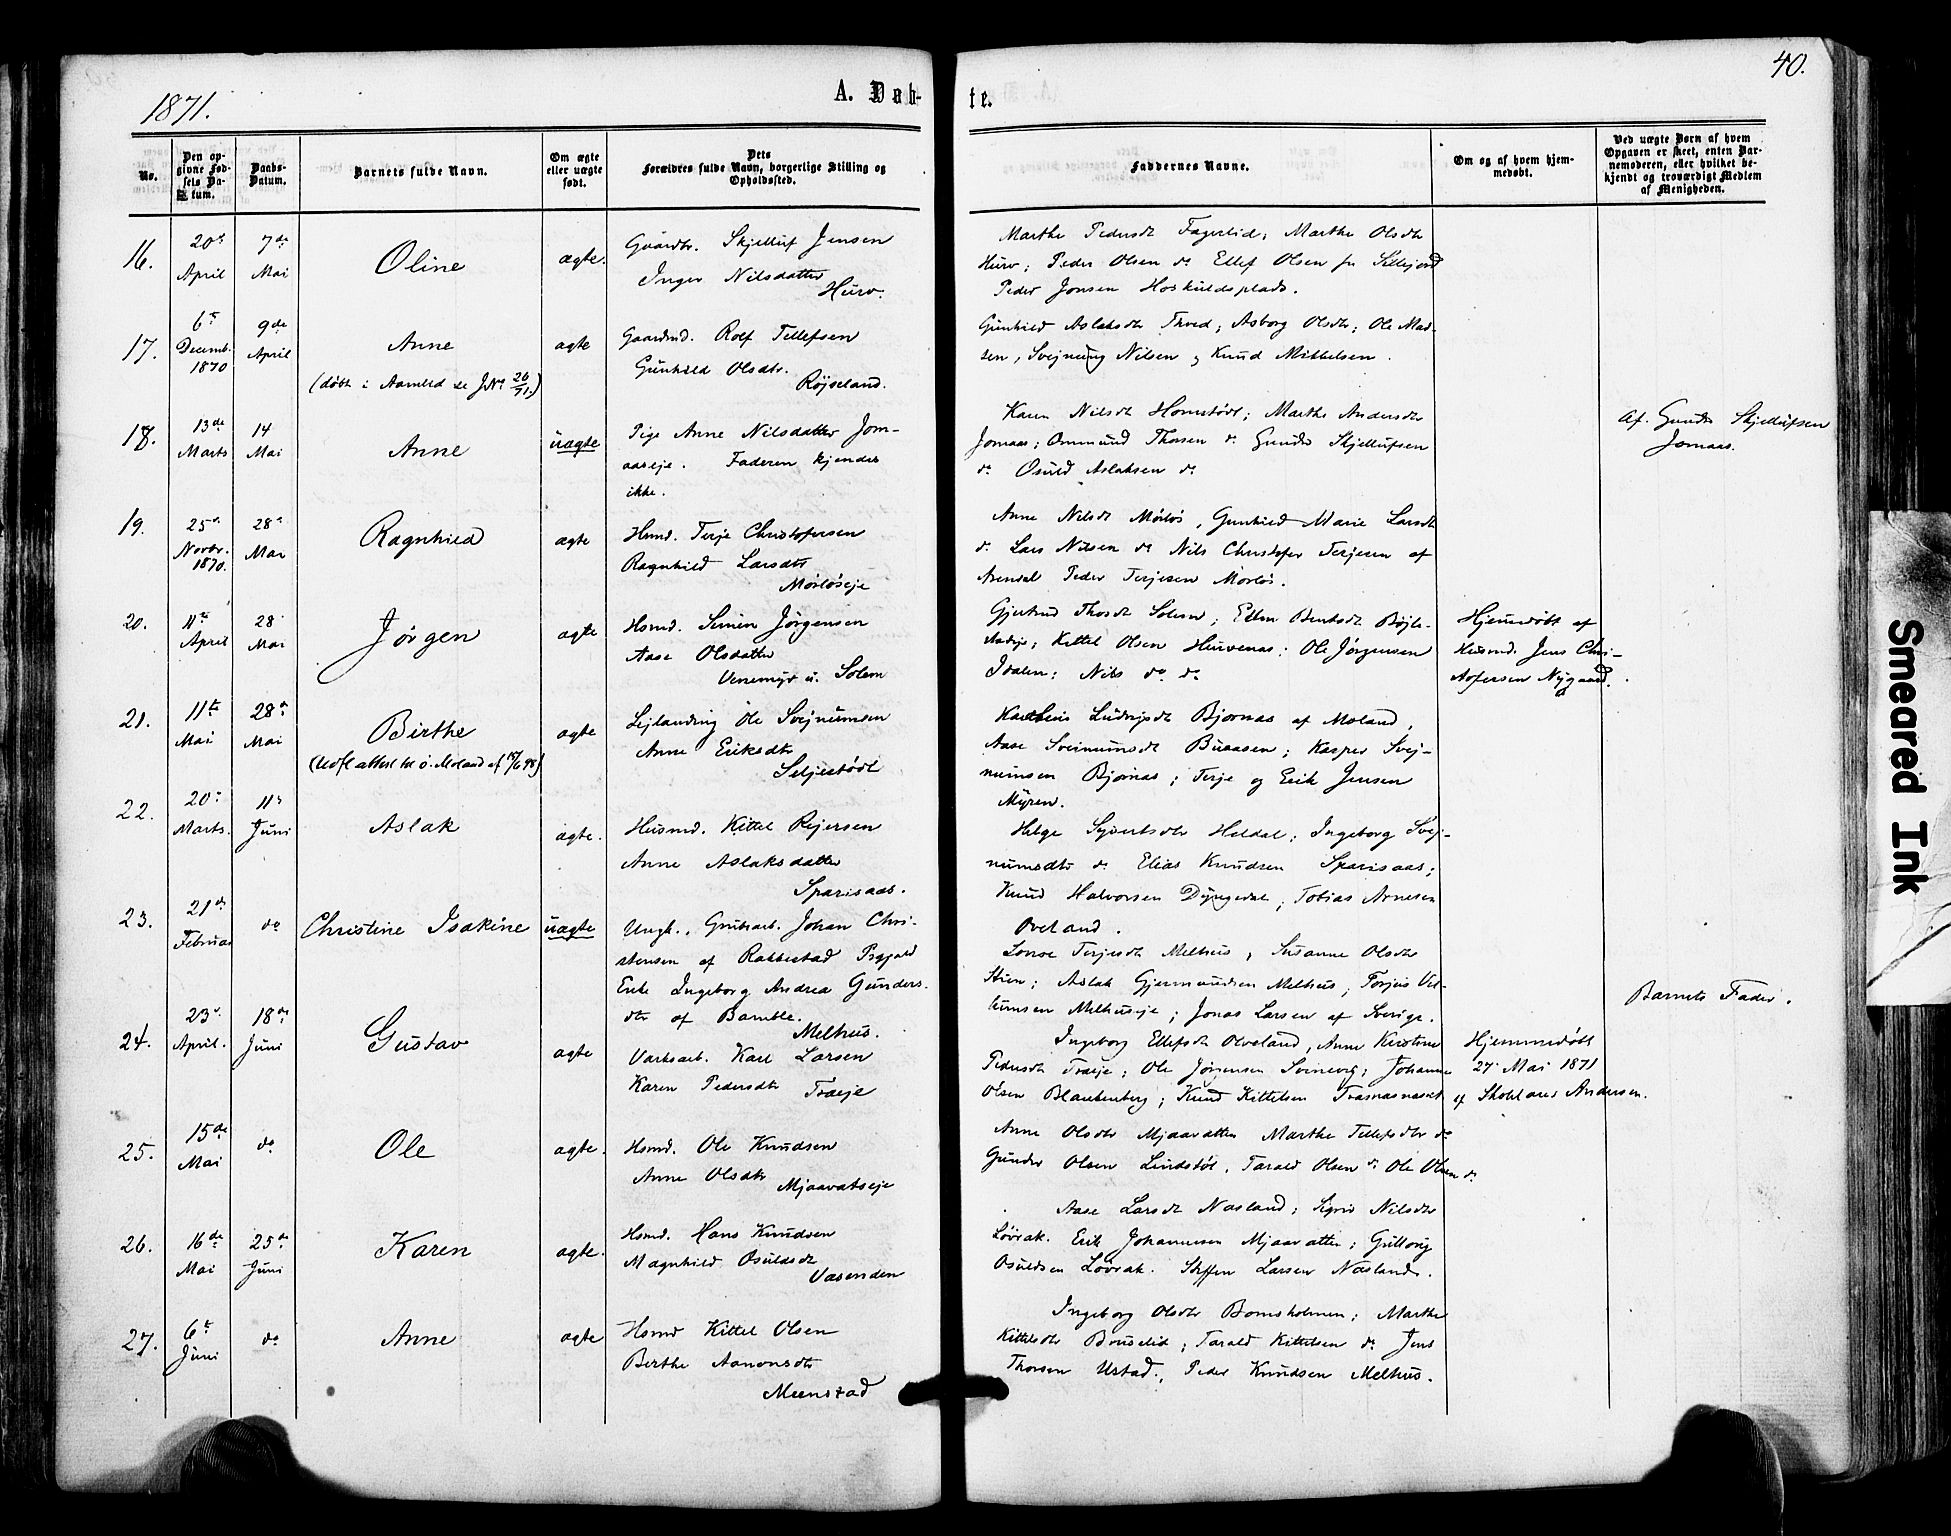 40.
1871.
A. Døb-
te.
No.
Den op-
givne Fød-
sels Da-
tum.
Daabs-
Datum.
Barnets fulde Navn.
Om ægte
eller uægte
født.
Dets
Forældres fulde Navn, borgerlige Stilling og
Opholdssted.
Faddernes Navne.
Om og af hvem hjem-
medøbt.
Ved uægte Børn af hvem
Opgaven er skeet, enten Bar-
nemoderen, eller hvilket be-
kjendt og troværdigt Medlem
af Menigheden.
16.
20de
April
7de
Mai
Oline
ægte.
Gaardbr. Skjelluf Jensen
Inger Nilsdatter
Hurv.
Marthe Pedersdt Fagerlid; Marthe Olsdtr
Hurv; Peder Olsen do Ellef Olsen fra Sillejord
Peder Jonsen Hoskuldsplads.
17.
6te
Decemb.
1870
9de
April
Anne
(døbt i Aamlid se J.No 26/71.)
ægte
Gaardmd. Rolf Tellefsen
Gunhild Olsdtr.
Røjseland.
Gunhild Aslaksdtr Tveid; Asborg Olsdtr; Ole Mad-
sen, Svejnung Nilsen og Knud Mikkelsen.
18.
13de
Marts
14
Mai
Anne
uægte
Pige Anne Nilsdatter Jom-
aaseje. Faderen kjendes
ikke.
Karen Nilsdt Homstødt; Marthe Andersdtr
Jomaas; Ommund Thorsen do Gunder Skjellufsen
do Osuld Aslaksen do
Af. Gunder Skjellufsen
Jomaas.
19.
25de
Novbr.
1870.
28de
Mai
Ragnhild
ægte
Husmd. Terje Christofersen
Ragnhild Larsdtr
Mørløseje
Anne Nilsdt Mørløs, Gunhild Marie Larsdt
do Lars Nilsen do Nils Christofer Terjesen af
Arendal Peder Terjesen Mørløs.
20.
11te
April
28
Mai
Jørgen
ægte
Hsmd. Simen Jørgensen
Aase Olsdatter
Venemyr u. Solem
Gjertrud Thorsdt Solem; Ellen Berntsdt Bøjle-
stadeje; Kittel Olsen Hurvenæs; Ole Jørgensen
Idalen; Nils do do
Hjemmedøbt af
Husmd. Jens Chri-
stofersen Nygaard.
21.
11te
Mai
28de
Mai
Birthe
(Udfl. attest til ø. Moland af
ægte
Lejlænding Ole Svejnumsen
Anne Eriksdtr
Seljestødt
Ludvigsdt Bjørnæs af Moland,
Aase Svejnumsdt Buaasen; Kasper Svej-
numsen Bjørnæs; Terje og Erik Jensen
Myren.
22.
20de
Marts.
11te
Juni
Aslak
ægte.
Husmd. Kittel Rejersen
Anne Aslaksdatter
Sparisaas.
Helge Syvertsdtr Heldal; Ingeborg Svej-
numsdtr do Elias Knudsen Sparisaas;
Knud Halvorsen Dyngedal; Tobias Arnesen
Oveland.
23.
21de
Februar
do
Christine Isakine
uægte
Ungk., Grubearb. Johan Chri-
stensen af Rakkestad Prgjæld
Enke Ingeborg Andrea Gunders-
dtr af Bamble.
Melhus.
Lovise Terjesdt Melhus, Susanne Olsdtr
Stien; Aslak Gjermundsen Melhus, Torjus Vel-
lumsen Melhuseje; Jonas Larsen af Sverige.
Barnets Fader.
24.
23de
April.
18de
Juni
Gustav
ægte
Værksarb. Karl Larsen
Karen Pedersdtr
Traeje
Ingeborg Ellefsdt Olveland, Anne Kirstine
Pedersdt Traeje; Ole Jørgensen Svinevig; Johannes
Olsen Blankenberg; Knud Kittelsen Trasnæsaset
Hjemmedøbt
27. Mai 1871
af Skolelærer Andersen.
25.
15de
Mai
do
Ole
ægte.
Hsmd. Ole Knudsen
Anne Olsdtr
Mjaavatseje
Anne Olsdtr Mjaavatten Marthe Tellefsdtr do
Gunder Olsen Lindstøl, Tarald Olsen do Ole Olsen do
26.
16de
Mai
25de
Juni
Karen
ægte.
Hsmd. Hans Knudsen
Magnhild Osuldsdt
Vasenden
Aase Larsdt Næsland; Sigrid Nilsdtr
Løvrak. Erik Johannesen Mjaavatten; Guttorm
Osuldsen Løvrak. Steffen Larsen Næsland.
27.
6te
Juni
do
Anne
ægte
Hsmd Kittel Olsen
Birthe Aanonsdtr
Meenstad
Ingeborg Olsdtr Bomsholmen; Marthe
Kittelsdtr Bruselid; Tarald Kittelsen do Jens
Thorsen Ustad., Peder Knudsen Melhus.
Smeared Ink